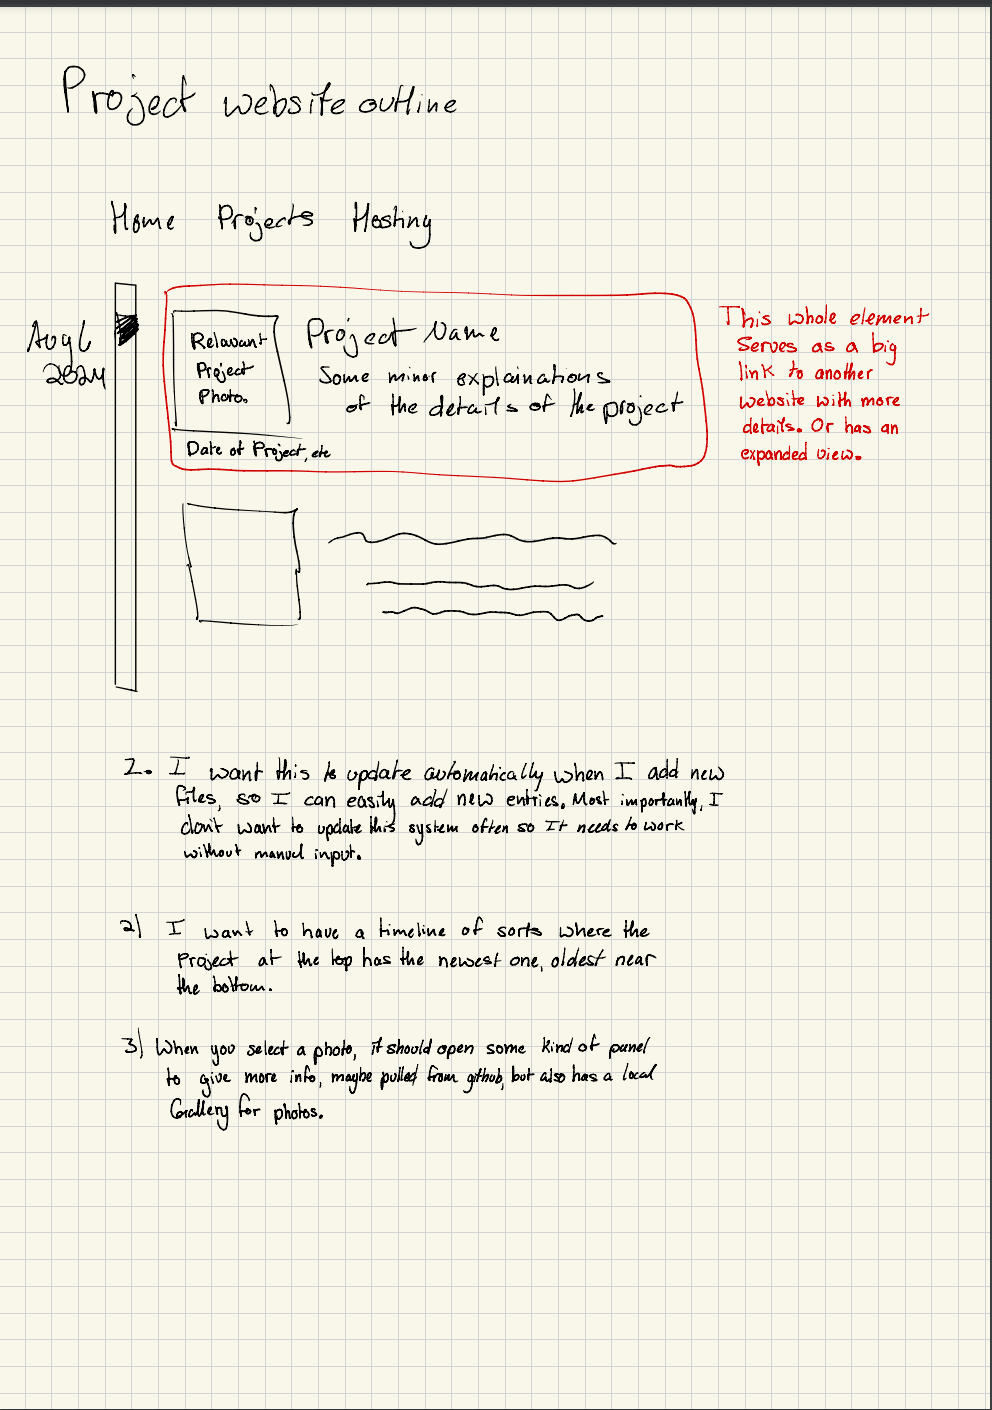 Project website outline
Home Projects Hosting
Aug 6
2024
Relavant
Project
Photo.
Project Name
Some minor explainations
of the details of the project
Date of Project, etc
This whole element
Serves as a big
link to another
website with more
details. Or has an
expanded view.
1. I want this to update automatically when I add new
files, so I can easily add new entries. Most importantly, I
don't want to update this system often so It needs to work
without manuel input.
2) I want to have a timeline of sorts where the
Project at the top has the newest one, oldest near
the bottom.
3) When you select a photo, it should open some kind of panel
to give more info, maybe pulled from github, but also has a local
Gallery for photos.